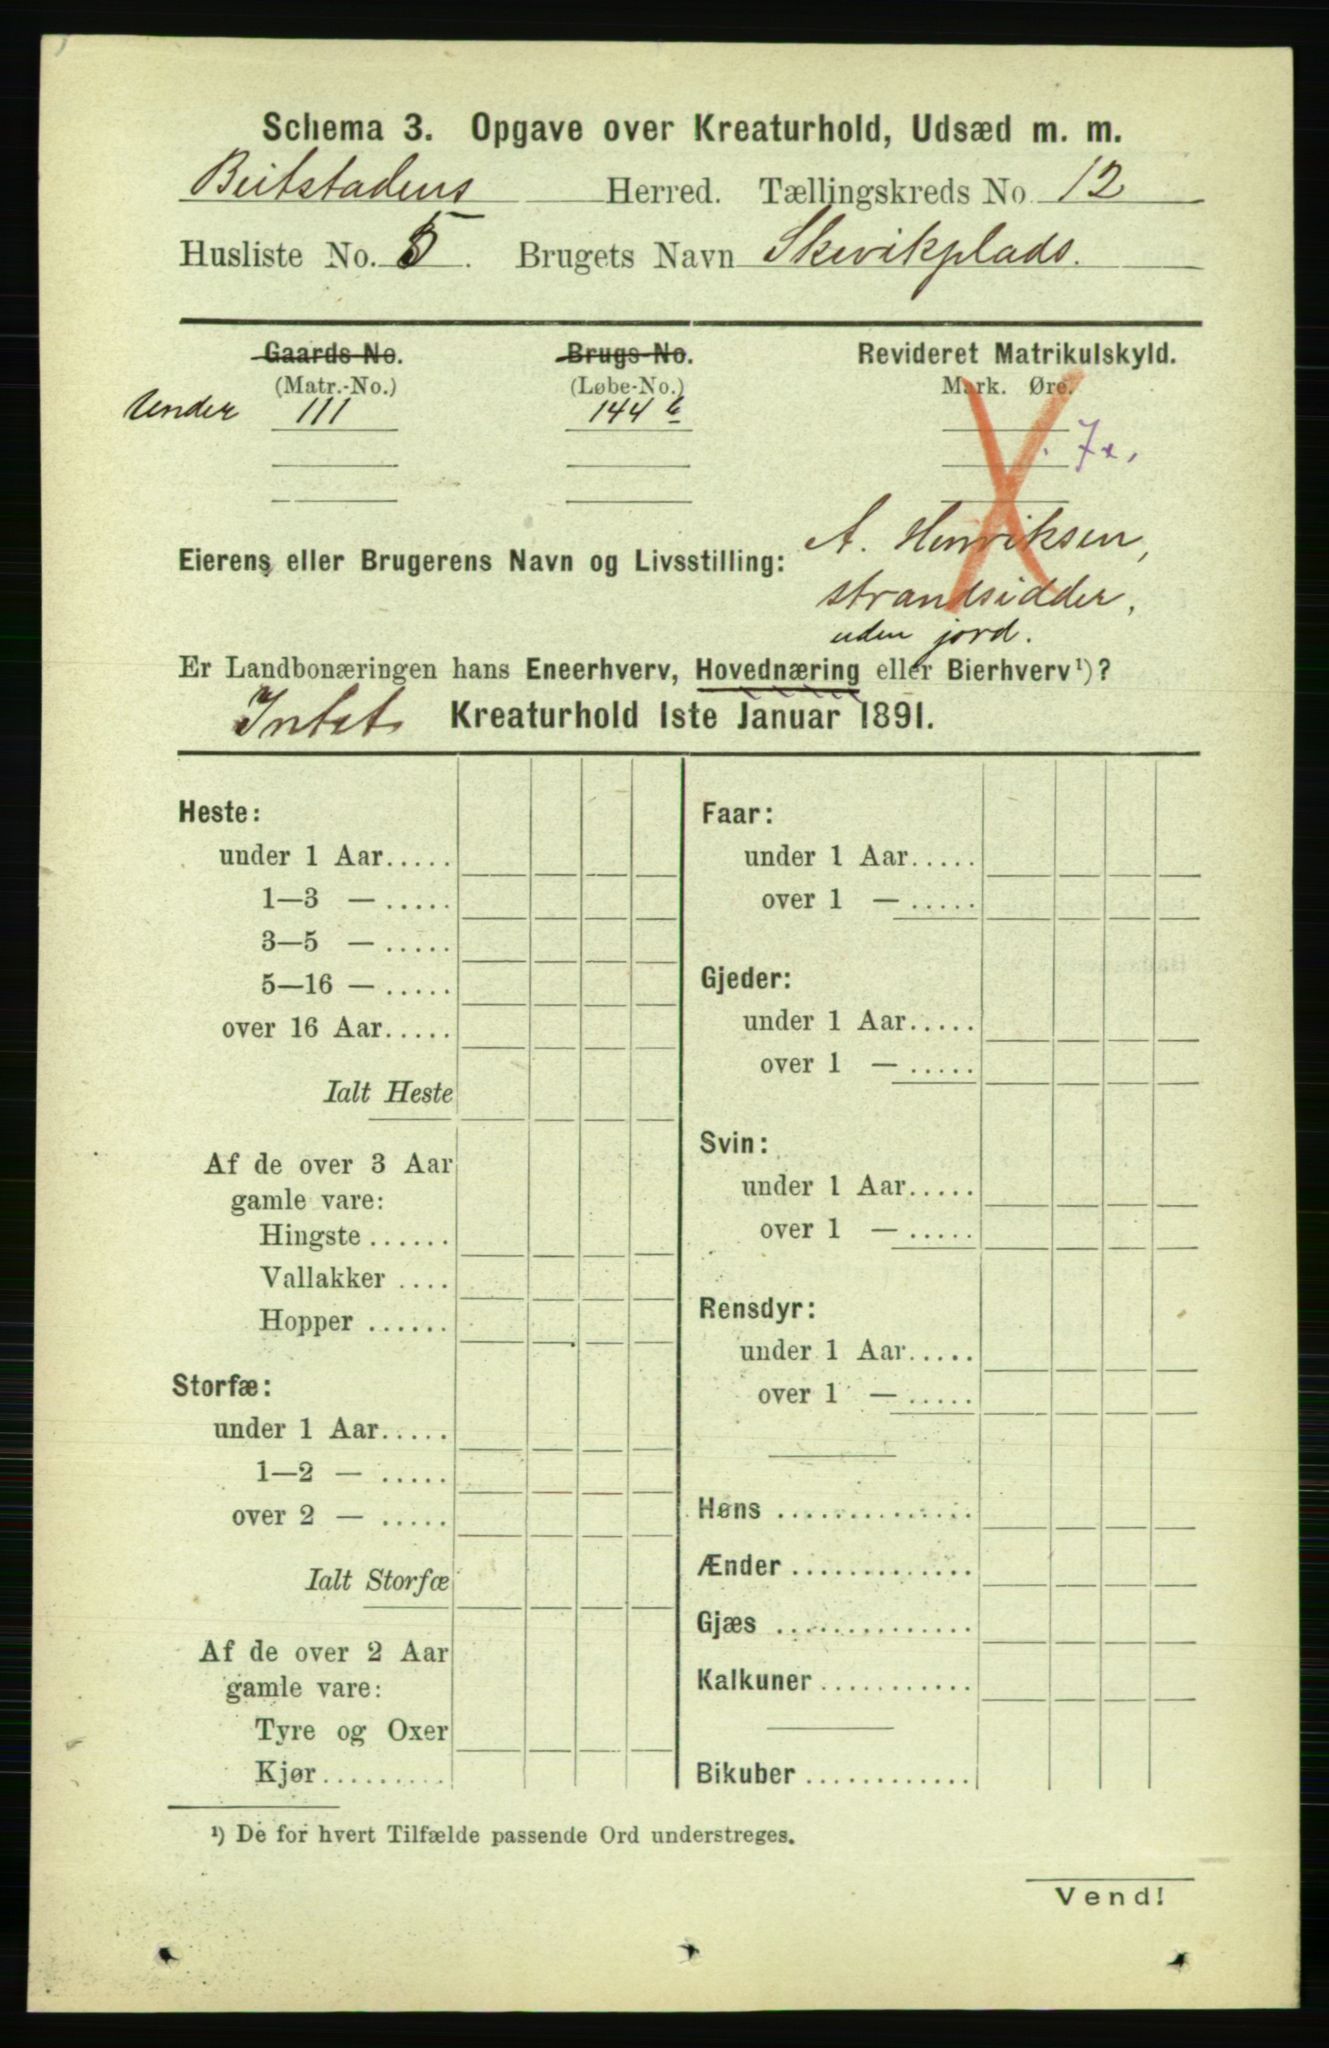 Schema 3. Opgave over Kreaturhold, Udsæd m. m.
Beitstadens Herred. Tællingskreds No. 12
Husliste No. 5. Brugets Navn Skevikplads.
Gaards-No. Brugs-No. Revideret Matrikulskyld.
(Matr.-No.) (Løbe-No.) Mark. Øre.
Under 111 144 b
7
A. Henriksen,
Eierens eller Brugerens Navn og Livsstilling:
strandsidder,
uden jord.
Er Landbonæringen hans Eneerhverv, Hovednæring eller Bierhverv¹)?
Intet Kreaturhold 1ste Januar 1891.
Heste:
under 1 Aar.....
1—3 — .....
3—5 — .....
5—16 — .....
over 16 Aar.....
Ialt Heste
Af de over 3 Aar
gamle vare:
Hingste ......
Vallakker ....
Hopper ......
Storfæ:
under 1 Aar.....
1—2 — .....
over 2 — .....
Ialt Storfæ
Af de over 2 Aar
gamle vare:
Tyre og Oxer
Kjør.........
Faar:
under 1 Aar.....
over 1 — .....
Gjeder:
under 1 Aar.....
over 1 — .....
Svin:
under 1 Aar.....
over 1 — .....
Rensdyr:
under 1 Aar.....
over 1 — .....
Høns ..............
Ænder .............
Gjæs ..............
Kalkuner ...........
Bikuber ............
¹) De for hvert Tilfælde passende Ord understreges.
Vend!